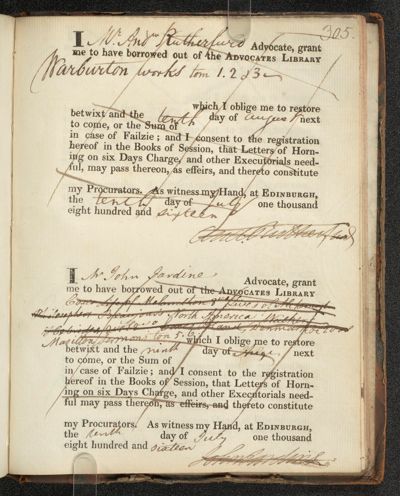 305.
I Mr. Andw Rutherfurd Advocate, grant
me to have borrowed out of the ADVOCATES LIBRARY
Warburton works tom 1. 2 & 3
which I oblige me to restore
betwixt and the tenth day of August next
to come, or the Sum of
in case of Failzie; and I consent to the registration
hereof in the Books of Session, that Letters of Horn-
ing on six Days Charge, and other Executorials need-
ful, may pass thereon, as effeirs, and thereto constitute
my Procurators. As witness my Hand, at EDINBURGH,
the tenth day of July one thousand
eight hundred and sixteen
And. Rutherfurd
I Mr John Jardine Advocate, grant
me to have borrowed out of the ADVOCATES LIBRARY
North America
Massillon Sermons tom 5. 6 which I oblige me to restore
betwixt and the ninth day of next
to come, or the Sum of
in case of Failzie; and I consent to the registration
hereof in the Books of Session, that Letters of Horn-
ing on six Days Charge, and other Executorials need-
ful may pass thereon, as effeirs, and thereto constitute
my Procurators. As witness my Hand, at EDINBURGH,
the tenth day of July one thousand
eight hundred and sixteen